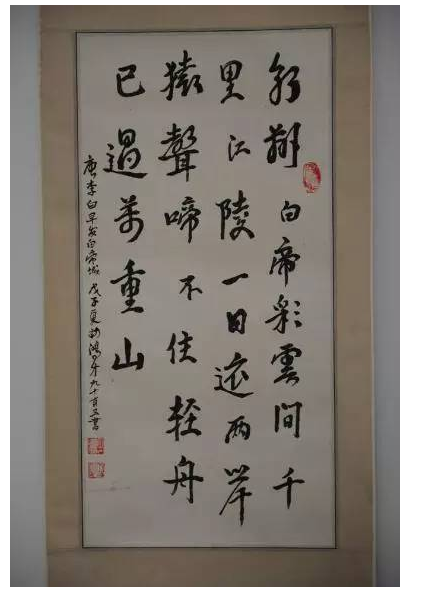 朝辭白帝彩雲間千
里江陵一日還两岸
猿聲啼不住輕舟
已過萬重山
唐李白早发白帝城 戊子夏 九十有五書